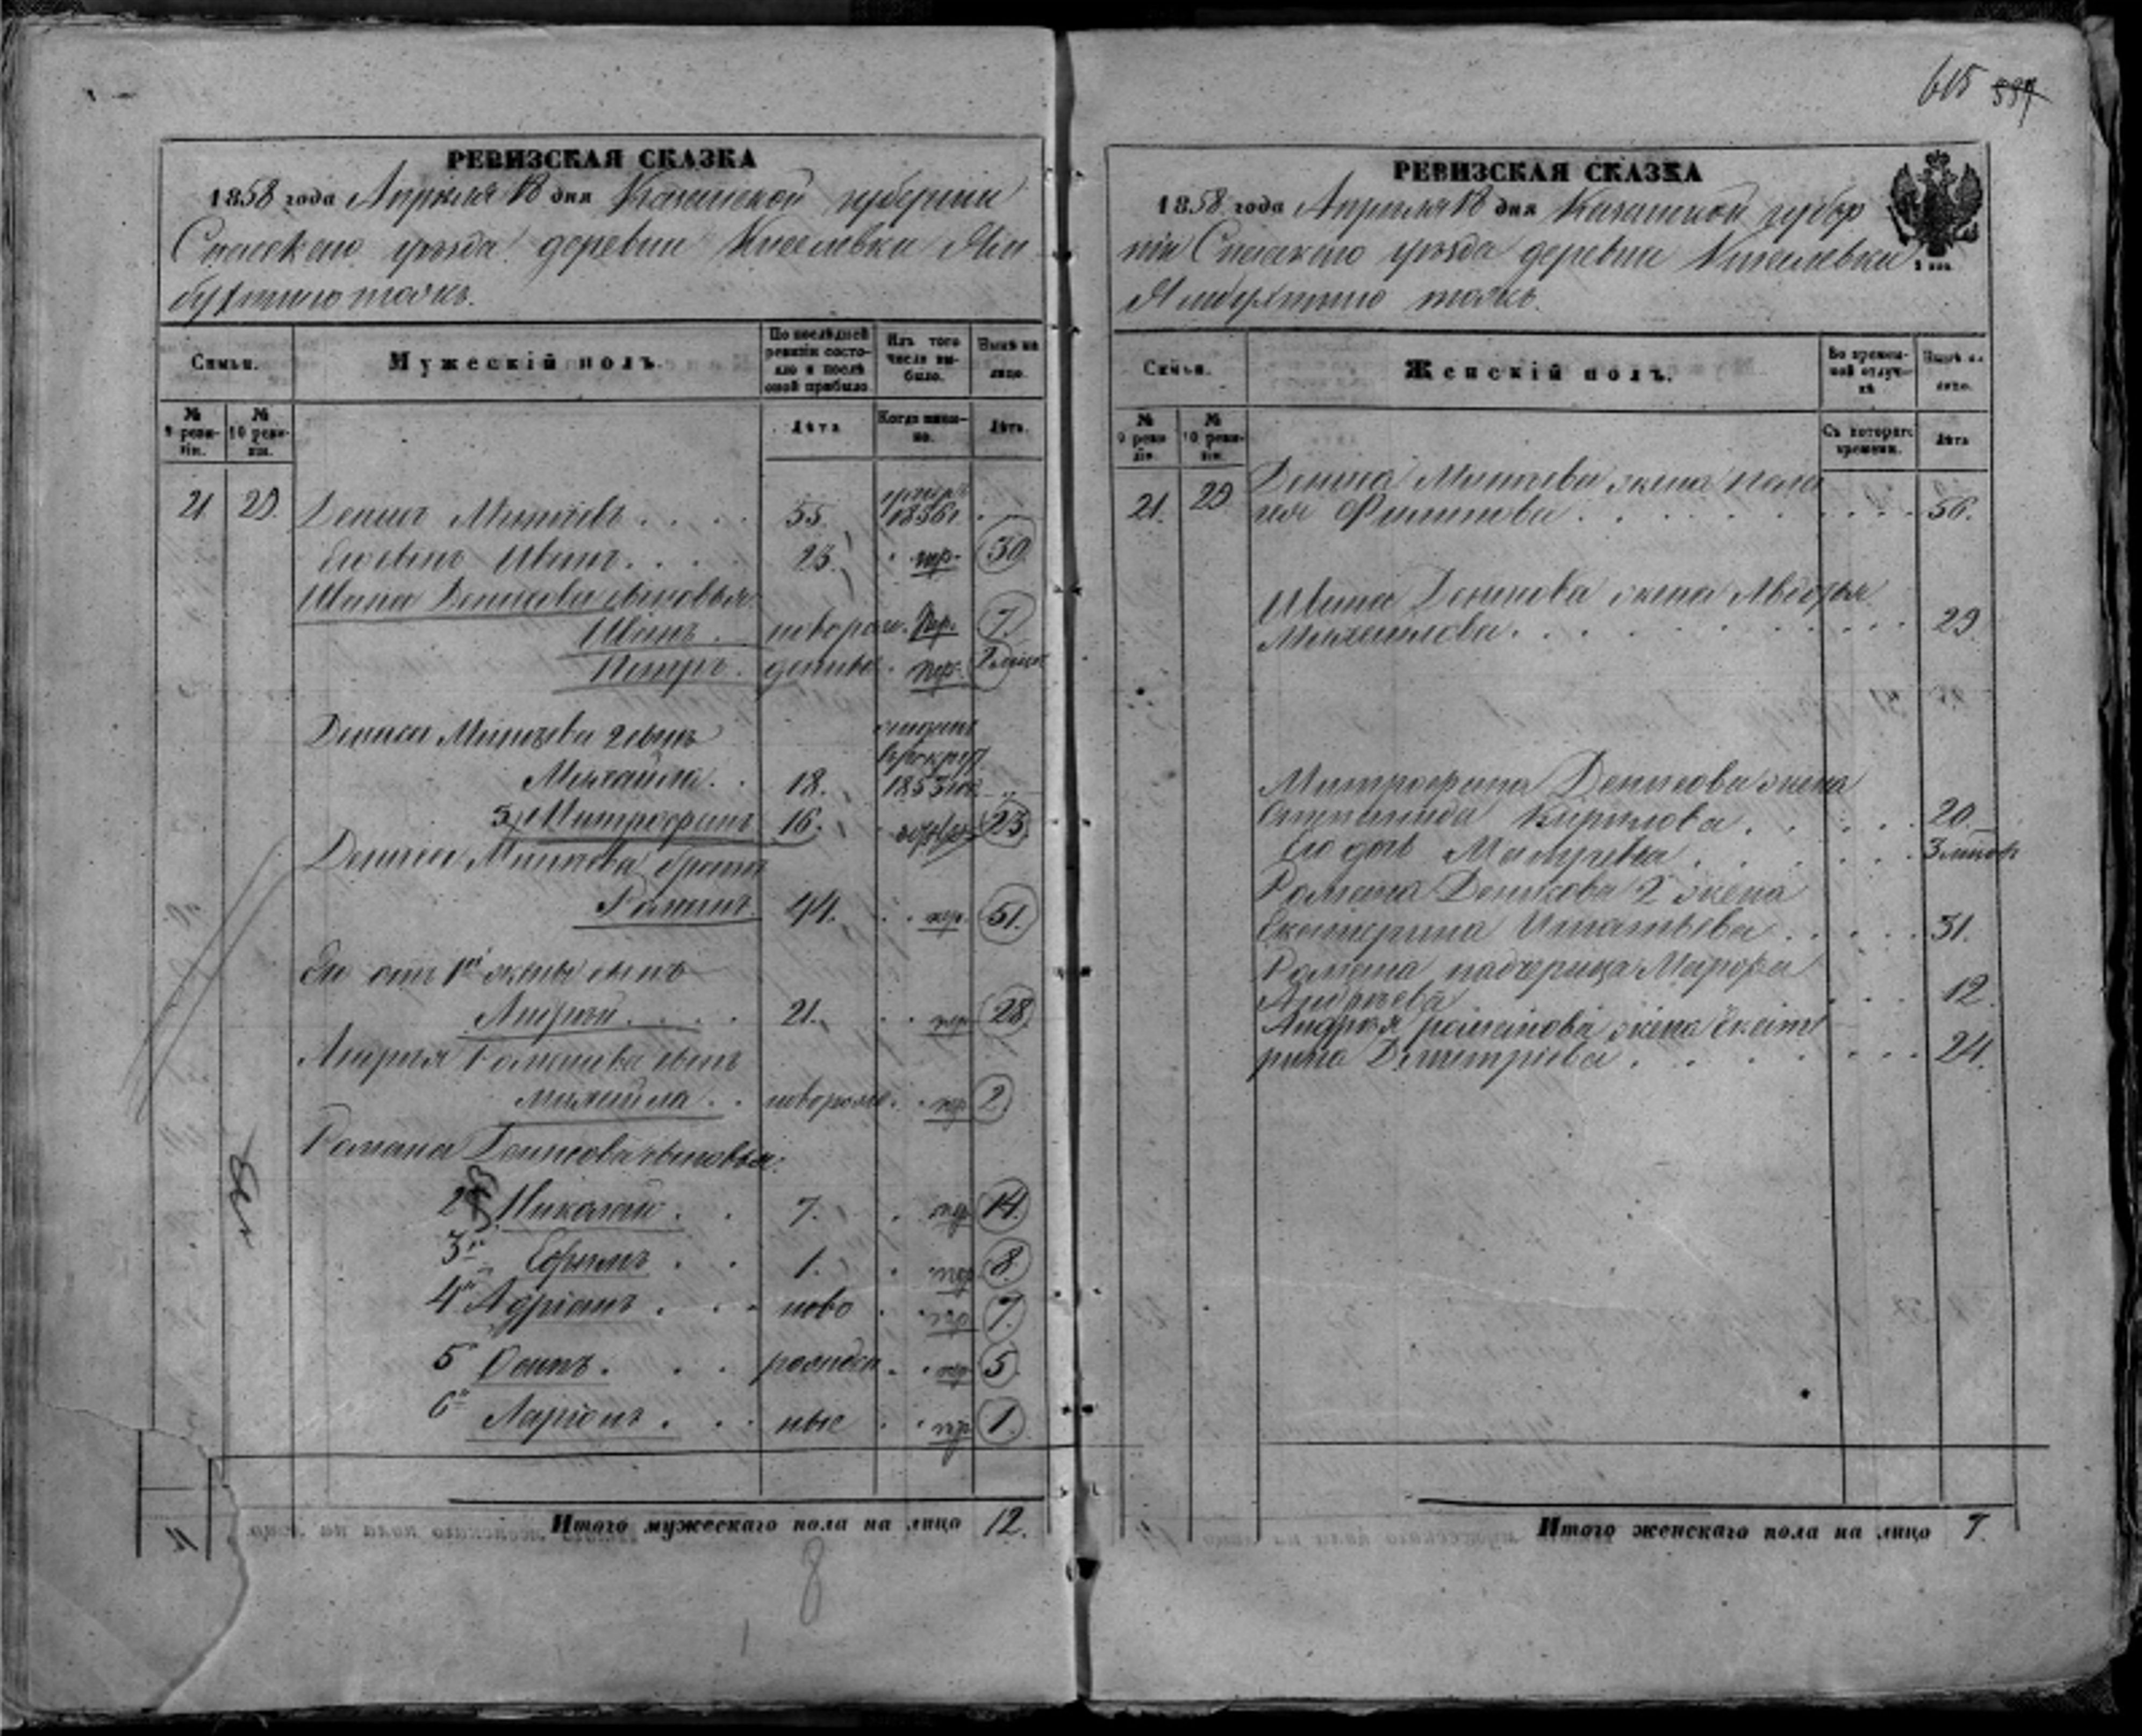 615 597
РЕВИЗСКАЯ СКАЗКА
1858 года Апреля 18 дня Казанской губернии
Спасскаго уезда деревни Киселевки
Семьи.
Мужескій полъ.
По послѣдней ревизіи состояло и послѣ оной прибыло
Изъ того числа выбыло.
Нынѣ на лицо.
№ 9 ревизіи.
№ 10 ревизіи.
Лѣта
Когда именно.
Лѣта.
21 29. Денис 55. 1856
Его сын Иван 23. 30
Ивана Денисова сыновья
Иван. новорож. 7.
Петр.
Дениса 2 сын
Михайла. 18. 1853
3 Митрофан 16. 23
Дениса брат
Роман. 44. 51.
Его от 1й жены сын
Андрей 21. 28.
Андрея Романова сын
Михайла новорож. 2
Романа Денисова сыновья:
2й Николай 7. 14.
3й Ефим 1. 8.
4й Адріан ново 7.
5 Осип. рожден 5.
6й Ларіон. ные 1.
Итого мужескаго пола на лицо 12.
8
РЕВИЗСКАЯ СКАЗКА
1858 года Апреля 18 дня Казанской губер
ніи Спасскаго уезда деревни Киселевки
Семьи.
Женскій полъ.
Во временной отлучкѣ
Нынѣ на лицо.
№ 9 ревизіи.
№ 10 ревизіи.
Съ котораго времени.
Лѣта
21. 29 Дениса жена Пела
гея Филипова 56.
Ивана Денисова жена Авдотья
Михайлова. 29.
Митрофана Денисова жена
Степанида Кирилова. 20.
Его дочь
Романа Денисова 2 жена
Екатерина Игнатьева 31.
Романа падчерица Марфа
Андреева 12.
Андрея романова жена Екате
рина Димитріева 24.
Итого женскаго пола на лицо 7.